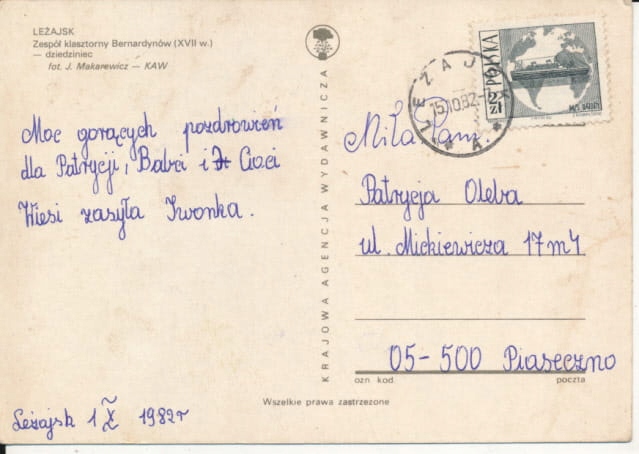 LEŻAJSK
Zespół klasztorny Bernardynów (XVII w.)
— dziedziniec
fot. J. Makarewicz — KAW
Moc gorących pozdrowień
dla Patrycji, Babci i Cioci
Wiesi zasyła Iwonka.
Leżajsk 1 X 1982r
KRAJOWA AGENCJA WYDAWNICZA
LEŻAJSK
15.10.82
A.
POLSKA
2 zł
Miła Pani
Patrycja Oleba
ul. Mickiewicza 17 m 4
05-500 Piaseczno
ozn kod
poczta
Wszelkie prawa zastrzeżone